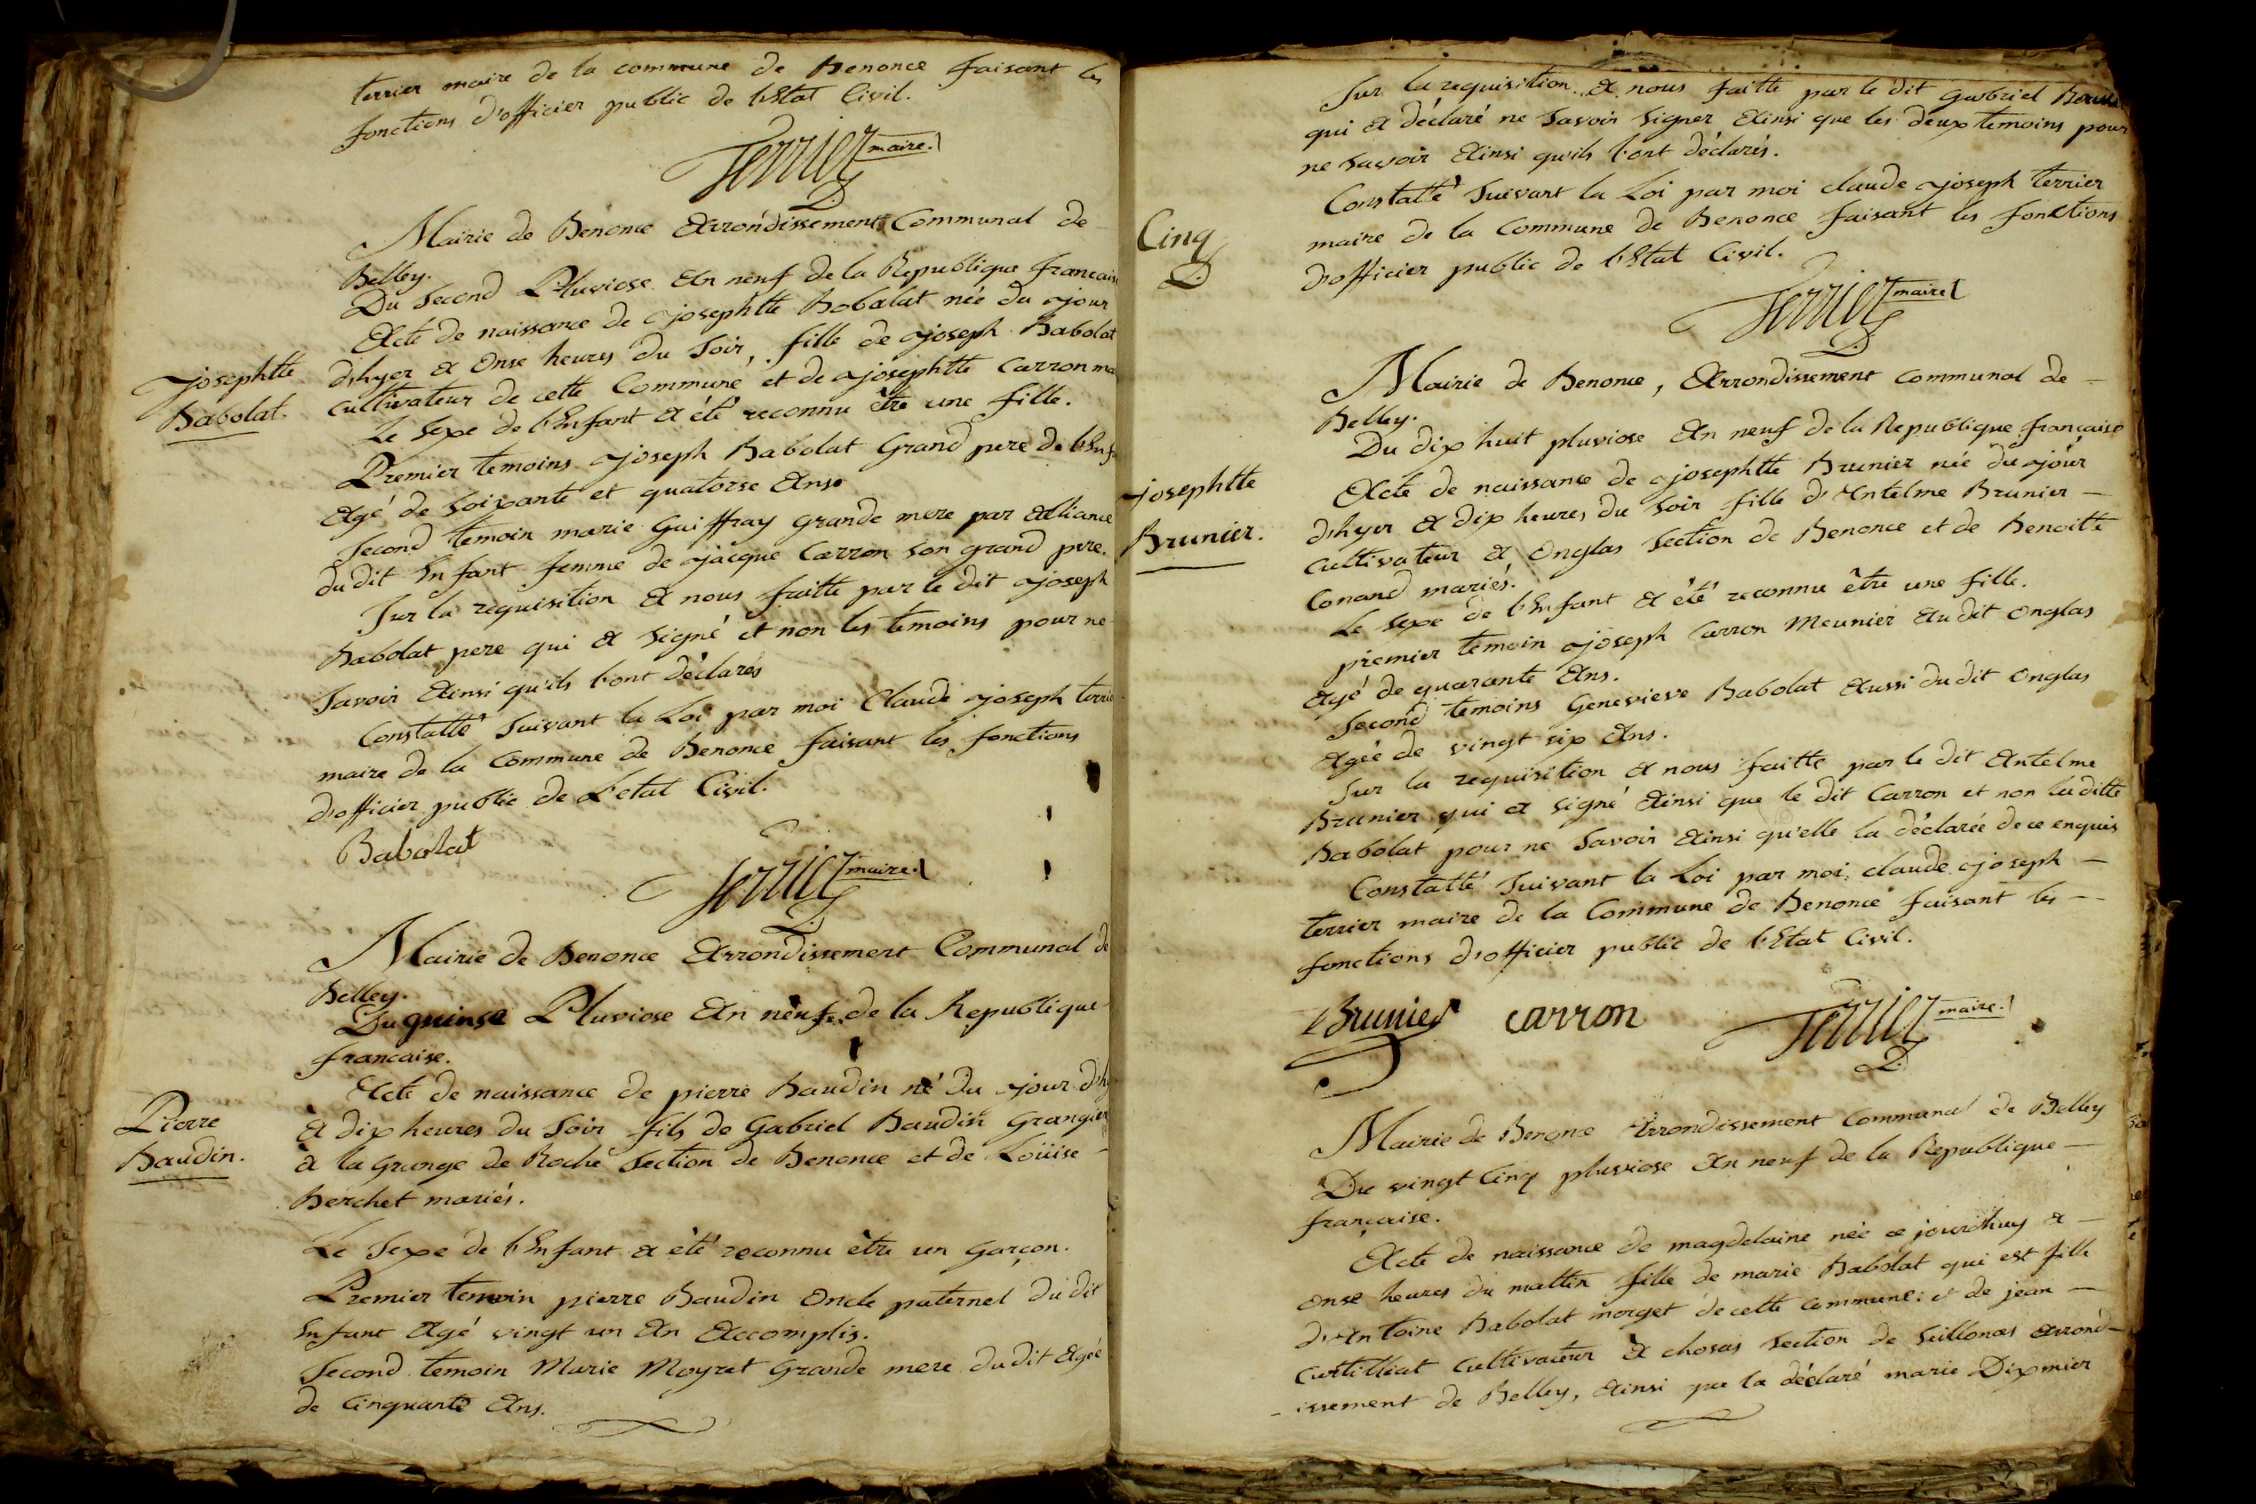 terrier maire de la commune de Benonce faisant les
fonctions d'officier public de l'Etat Civil.
Terrier maire.
Mairie de Benonce Arrondissement Communal de
Belley.
Du Second Pluviose An neuf de la Republique francaise
Acte de naissance de josephtte Babolat née du jour
d'hyer a Onse heures du Soir, fille de joseph Babolat
cultivateur de cette Commune et de josephtte Carron ma
josephtte
Babolat.
Le Sexe de l'Enfant a été reconnu être une fille.
Premier temoins joseph Babolat Grand pere de l'Enf
Agé de Soixante et quatorse Ans.
Second temoin marie Guiffray grande mere par Alliance
du dit Enfant femme de jacque Carron Son grand pere.
Sur la requisition A nous faitte par le dit joseph
Babolat pere qui a Signé et non les temoins pour ne
Savoir Ainsi qu'ils l'ont déclarés
Constatté Suivant la Loi par moi Claude joseph terrie
maire de la Commune de Benonce faisant les fonctions
d'officier public de L'etat Civil.
Babolat
Terrier maire.
Mairie de Benonce Arrondissement Communal de
Belley.
Du quinse Pluviose An neuf de la Republique
francaise.
Acte de naissance de pierre Baudin né du jour d'hy
à dix heures du Soir fils de Gabriel Baudin Grangier
a la Grange de Roche Section de Benonce et de Loüise
Berchet mariés.
Pierre
Baudin.
Le Sexe de l'Enfant a été reconnu être un Garçon.
Premier temoin pierre Baudin Oncle paternel du dit
Enfant Agé vingt un An Accomplis.
Second temoin Marie Moyret Grande mere du dit Agée
de Cinquante Ans.
Cinq
Sur la requisition A nous faitte par le dit Gabriel
qui A déclaré ne Savoir Signer Ainsi que les deux temoins pour
ne Savoir Ainsi qu'ils l'ont déclarés.
Constatté Suivant la Loi par moi claude joseph terrier
maire de la Commune de Benonce faisant les fonctions
d'officier public de l'Etat Civil.
Terrier maire
Mairie de Benonce, Arrondissement Communal de
Belley.
Du dix huit pluviose An neuf de la Republique française
Acte de naissance de josephtte Brunier née du jour
d'hyer A dix heures du Soir fille d'Antelme Brunier
Cultivateur A Onglas Section de Benonce et de Benoitte
Conand mariés.
josephtte
Brunier.
Le Sexe de l'Enfant A été reconnu être une fille.
premier temoin joseph Carron Meunier Au dit Onglas
Agé de quarante Ans.
Second temoins Genevieve Babolat Aussi du dit Onglas
Agée de vingt six Ans.
Sur la requisition A nous faitte par le dit Antelme
Brunier qui a Signé Ainsi que le dit Carron et non la ditte
Babolat pour ne Savoir Ainsi qu'elle la déclarée de ce enquis
Constatté Suivant la Loi par moi, claude joseph
terrier maire de la Commune de Benonce faisant les
fonctions d'officier public de l'Etat Civil.
Brunier carron Terrier maire.
Mairie de Benonce Arrondissement Communal de Belley
Du vingt Cinq pluviose An neuf de la Republique
française.
Acte de naissance de magdelaine née ce jourd'huy a
Onse heures du mattin fille de marie Babolat qui est fille
d'Antoine Babolat morget de cette Commune: et de jean
Curtilliat Cultivateur A chosas Section de Seillonas Arrond-
-issement de Belley, Ainsi que la déclaré marie Dixmier